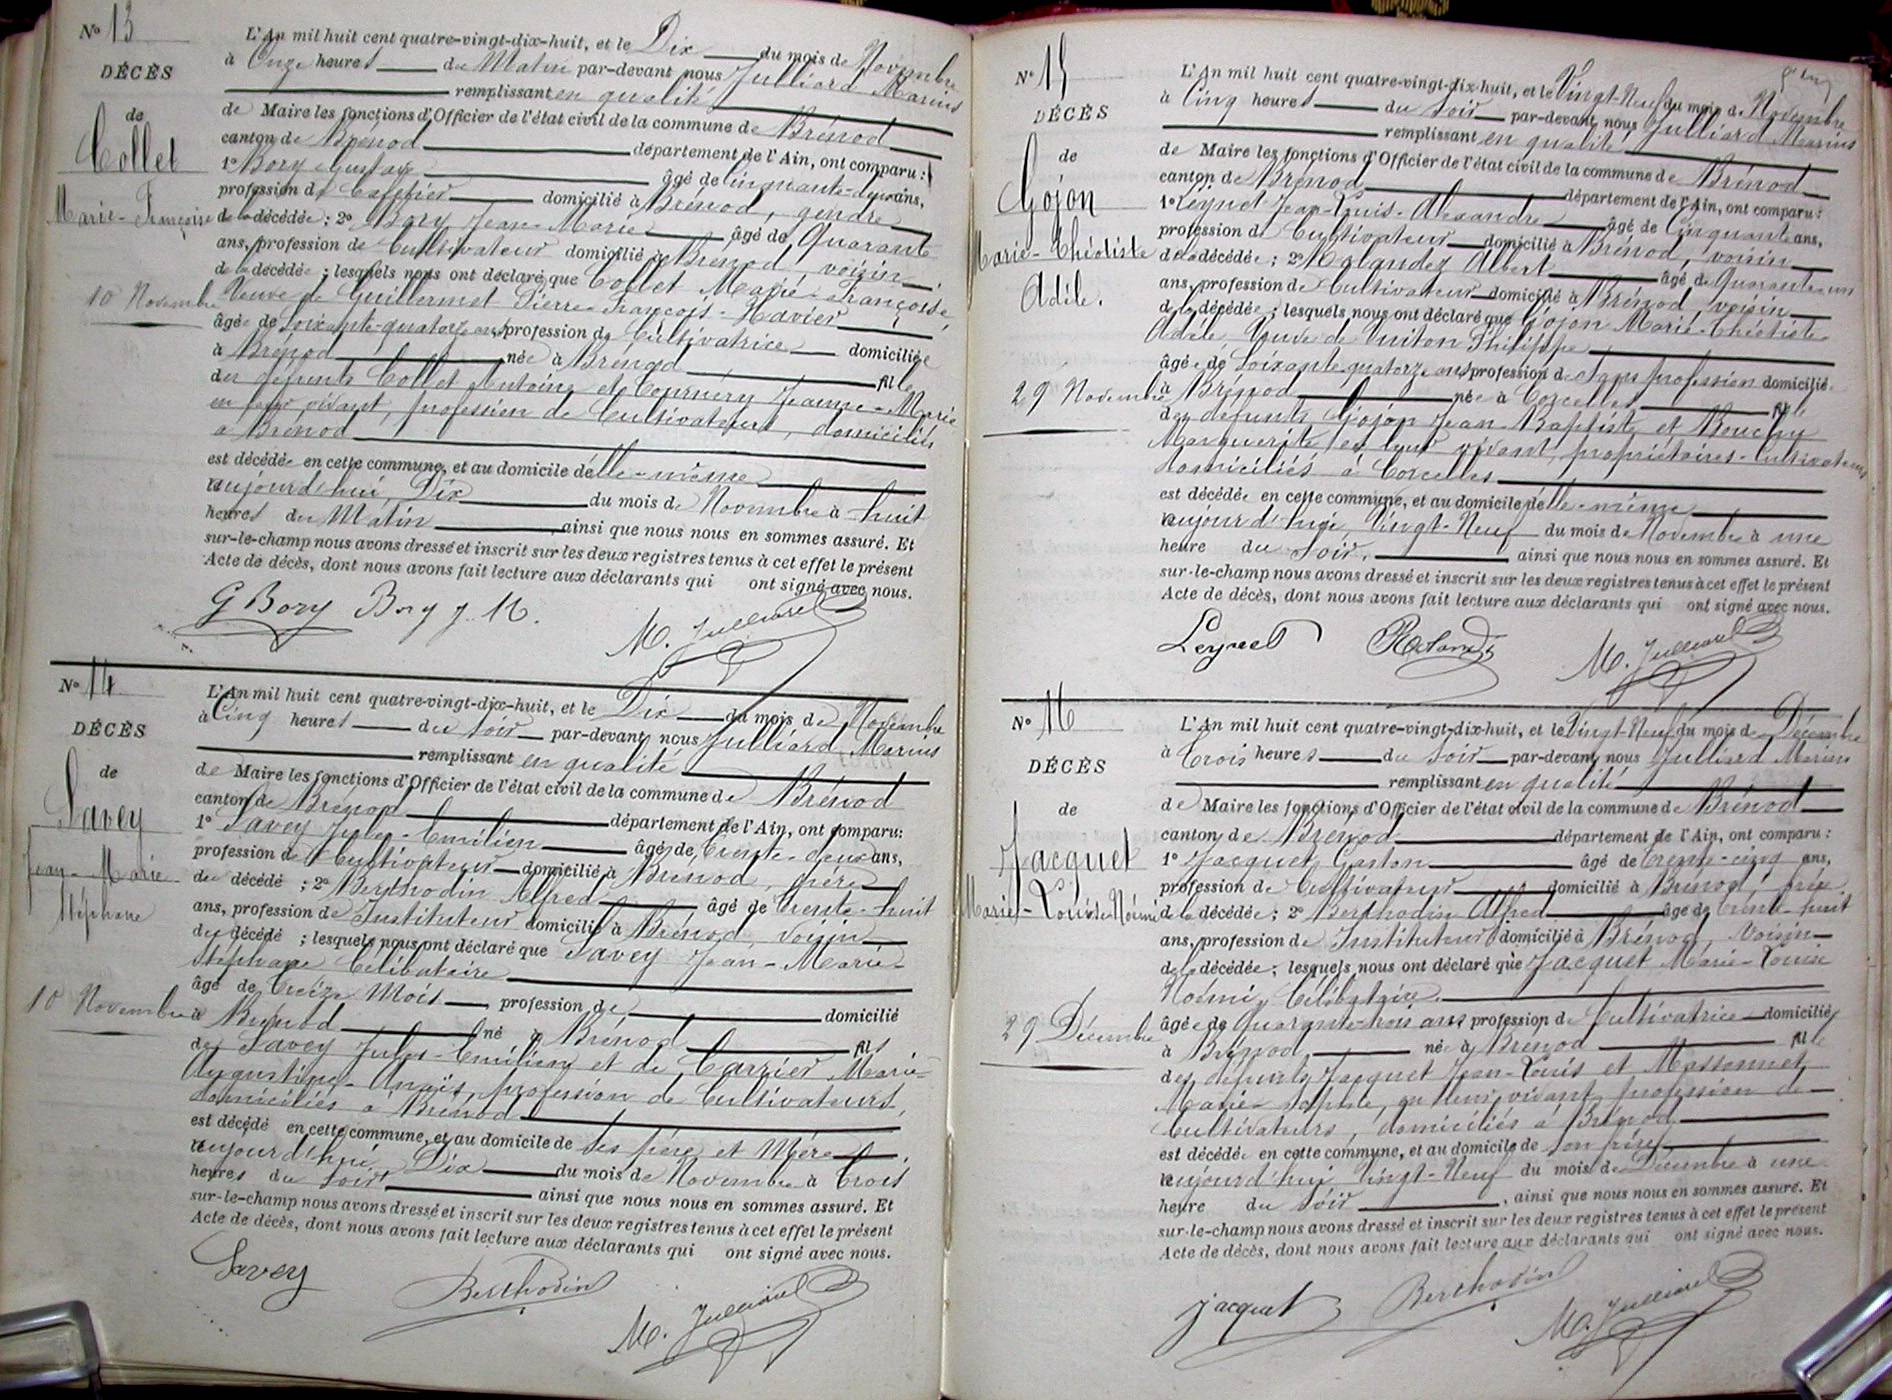 N° 13
DÉCÈS
de
Collet
Marie-Françoise
10 Novembre
L'An mil huit cent quatre-vingt-dix-huit, et le Dix du mois de Novembre
à Onze heures du Matin par-devant nous Julliard Marius
remplissant en qualité
de Maire les fonctions d'Officier de l'état civil de la commune de Brénod
canton de Brénod département de l'Ain, ont comparu :
1° Bory Gustave âgé de Cinquante-deux ans,
profession de Cafetier domicilié à Brénod, gendre
de la décédée ; 2° Bory Jean-Marie âgé de Quarante
ans, profession de Cultivateur domicilié à Brénod, voisin
de la décédée ; lesquels nous ont déclaré que Collet Marie-Françoise,
Veuve de Guillermet Pierre-François-Xavier
âgée de Soixante-quatorze ans, profession de Cultivatrice domiciliée
à Brénod née à Brénod fille
des défunts Collet Antoine et Jeanne-Marie
en leur vivant, profession de Cultivateurs, domiciliés
à Brénod
est décédée en cette commune, et au domicile d'elle-même
aujourd'hui, Dix du mois de Novembre à huit
heures du Matin ainsi que nous nous en sommes assuré. Et
sur-le-champ nous avons dressé et inscrit sur les deux registres tenus à cet effet le présent
Acte de décès, dont nous avons fait lecture aux déclarants qui ont signé avec nous.
G Bory Bory j. M. M. Julliard
N° 14
DÉCÈS
de
Savey
Jean-Marie
Stéphane
10 Novembre
L'An mil huit cent quatre-vingt-dix-huit, et le Dix du mois de Novembre
à Cinq heures du Soir par-devant nous Julliard Marius
remplissant en qualité
de Maire les fonctions d'Officier de l'état civil de la commune de Brénod
canton de Brénod département de l'Ain, ont comparu :
1° Savey Jules-Emilien âgé de Trente-deux ans,
profession de Cultivateur domicilié à Brénod, père
du décédé ; 2° Berthodin Alfred âgé de Trente-huit
ans, profession de Instituteur domicilié à Brénod, voisin
du décédé ; lesquels nous ont déclaré que Savey Jean-Marie-
Stéphane Célibataire
âgé de Treize Mois profession de domicilié
à Brénod né à Brénod fils
de Savey Jules-Emilien et de Carrier Marie-
Augustine-Anaïs, profession de Cultivateurs,
domiciliés à Brénod
est décédé en cette commune, et au domicile de ses père et Mère
aujourd'hui, Dix du mois de Novembre à Trois
heures du Soir ainsi que nous nous en sommes assuré. Et
sur-le-champ nous avons dressé et inscrit sur les deux registres tenus à cet effet le présent
Acte de décès, dont nous avons fait lecture aux déclarants qui ont signé avec nous.
Savey Berthodin M. Julliard
N° 15
DÉCÈS
de
Gojon
Marie-Théotiste
Adèle.
29 Novembre
L'An mil huit cent quatre-vingt-dix-huit, et le Vingt-Neuf du mois de Novembre
à Cinq heures du Soir par-devant nous Julliard Marius
remplissant en qualité
de Maire les fonctions d'Officier de l'état civil de la commune de Brénod
canton de Brénod département de l'Ain, ont comparu :
1° Leynet Jean-Louis-Alexandre âgé de Cinquante ans,
profession de Cultivateur domicilié à Brénod, voisin
de la décédée ; 2° Rolandez Albert âgé de Quarante-un
ans, profession de Cultivateur domicilié à Brénod, voisin
de la décédée ; lesquels nous ont déclaré que Gojon Marie-Théotiste
Adèle, Veuve de Vuiton Philippe
âgée de Soixante-quatorze ans profession de Sans profession domiciliée
à Brénod née à Corcelles fille
des défunts Gojon Jean-Baptiste et
Marguerite, en leur vivant, propriétaires-Cultivateurs
domiciliés à Corcelles
est décédée en cette commune, et au domicile d'elle-même
aujourd'hui, Vingt-Neuf du mois de Novembre à une
heure du Soir, ainsi que nous nous en sommes assuré. Et
sur-le-champ nous avons dressé et inscrit sur les deux registres tenus à cet effet le présent
Acte de décès, dont nous avons fait lecture aux déclarants qui ont signé avec nous.
Leynet Rolandez M. Julliard
N° 16
DÉCÈS
de
Jacquet
Marie-Louise Noémi
29 Décembre
L'An mil huit cent quatre-vingt-dix-huit, et le Vingt-Neuf du mois de Décembre
à Trois heures du Soir par-devant nous Julliard Marius
remplissant en qualité
de Maire les fonctions d'Officier de l'état civil de la commune de Brénod
canton de Brénod département de l'Ain, ont comparu :
1° Jacquet Gaston âgé de Trente-cinq ans,
profession de Cultivateur domicilié à Brénod, frère
de la décédée ; 2° Berthodin Alfred âgé de Trente-huit
ans, profession de Instituteur domicilié à Brénod, Voisin
de la décédée ; lesquels nous ont déclaré que Jacquet Marie-Louise
Noémi, Célibataire
âgée de Quarante-trois ans profession de Cultivatrice domiciliée
à Brénod née à Brénod fille
des défunts Jacquet Jean-Louis et Massonnet
Marie, en leur vivant profession de
Cultivateurs, domiciliés à Brénod
est décédée en cette commune, et au domicile de son frère
aujourd'hui Vingt-Neuf du mois de Décembre à une
heure du Soir, ainsi que nous nous en sommes assuré. Et
sur-le-champ nous avons dressé et inscrit sur les deux registres tenus à cet effet le présent
Acte de décès, dont nous avons fait lecture aux déclarants qui ont signé avec nous.
Jacquet Berthodin M. Julliard